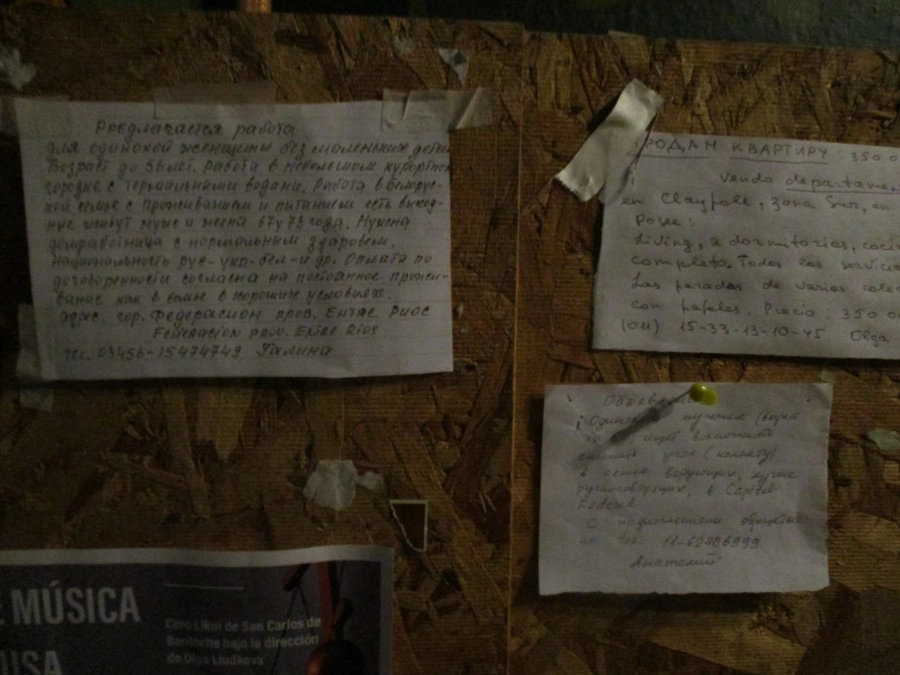 Предлагается работа
для одинокой женщины без маленьких детей
Возраст до 56 лет. Работа в небольшом курортном
городке с термальными водами. Работа в белорус-
кой семье с проживанием и питанием есть выход-
ные живут муж и жена 67 у 73 года. Нужна
домработница с нормальным здаровем.
Национальность рус-укр-бел-и др. Оплата по
договоренности согласна на постоянное прожи-
вание как в семье в хороших условиях.
адрес. гор. Федерасион пров. Ентре Риос
Federacion prov. Entre Rios
тел. 03456-15474749 Галина
ПРОДАМ КВАРТИРУ 350 0
Vendo departame
en Claypole, zona Sur, en
Posee:
Living, 2 dormitorios, coci
completo. Todos los servicio
Las paradas de varios cole
con papeles. Precio: 350 0
(011) 15-33-13-10-45 Olga
Одинокий мужчина
снимет угол (комнату)
в семье верующих, лучше
русскоговорящих, в Capital
Federal
С предложениями
по тел: 11-62706999
Анатолий
E MÚSICA
USA
Coro Likui de San Carlos de
Bariloche bajo la dirección
de Olga Liudkova